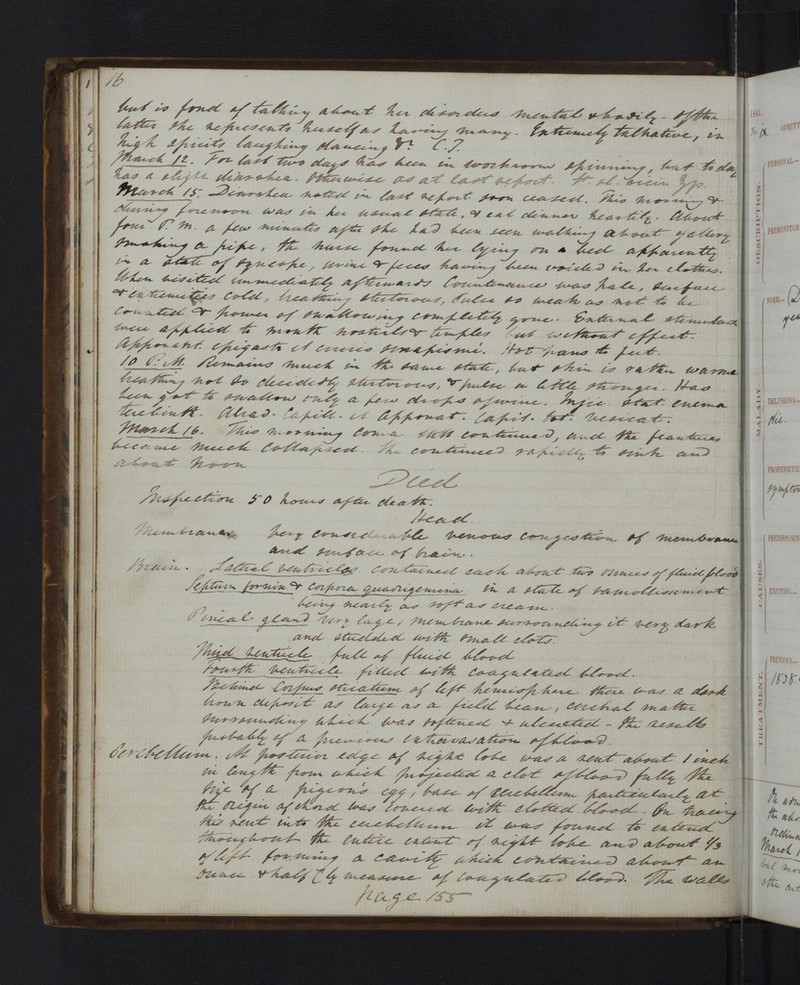 16
but is fond of talking about her disorders mental & bodily - Of the
latter she represents herself as having many. Extremely talkative, in
high spirits laughing dancing &c. C.T.
March 12. For last two days has been in workroom spinning, but to day
has a slight diarrhea. Otherwise as at last report.
March 15. Diarrhea noted in last report soon ceased. This morning &
during forenoon was in her usual state, & eat dinner heartily. About
four P.M. a few minutes after she had been seen walking about gallery
smoking a pipe, the nurse found her lying on a bed apparently
in a state of syncope, urine & feces having been voided in her clothes.
When visited immediately afterwards countenance was pale, surface
& extremities cold, breathing stertorous, pulse so weak as not to be
counted & power of swallowing completely gone. External stimulants
were applied to mouth nostrils & temples but without effect.
Apponant. epigastr. et cruris sinapismi. Hot pans to feet.
10 P.M. Remains much in the same state, but skin is rather warmer
breathing not so decidedly stertorous, & pulse a little stronger. Has
been got to swallow only a few drops of wine. Injic. stat. enema
terebinth. Abrad. Capill. et Apponat. Capit. tot. vesicat.
March 16. This morning coma still continued, and the features
became much collapsed. She continued rapidly to sink and
about noon
Died
Inspection 50 hours after death.
Head
Membranes. Very considerable venous congestion of membranes
and surface of brain.
Brain. Lateral ventricles contained each about two ounces of fluid blood
Septum fornix & corpora quadrigemina in a state of ramollissement
being nearly as soft as cream.
Pineal gland very large, membrane surrounding it very dark
and studded with small clots.
Third ventricle full of fluid blood
Fourth ventricle filled with coagulated blood.
Behind Corpus striatum of left hemisphere there was a dark
brown deposit as large as a field bean, cerebral matter
surrounding which was softened & ulcerated - the results
probably of a previous extravasation of blood.
Cerebellum. At posterior edge of right lobe was a rent about 1 inch
in length from which projected a clot of blood fully the
size of a pigeon's egg; base of cerebellum particularly at
the origin of chord was covered with clotted blood. On tracing
this rent into the cerebellum it was found to extend
throughout the entire extent of right lobe and about 1/3
of left forming a cavity which contained about an
ounce & half (by measure of coagulated blood. The walls
page 155
1841.
No. ix
ADMITT
PERSONAL.—
DESCRIPTION.
PREMONITOR
FORM.—
MALADY
DELUSIONS.—
PROPENSITIE
sympto
PREDISPOSIN
CAUSES.
EXCITING.—
PREVIOUS.—
1838
TREATMENT.
On adm
the abo
March 1
but mo
other